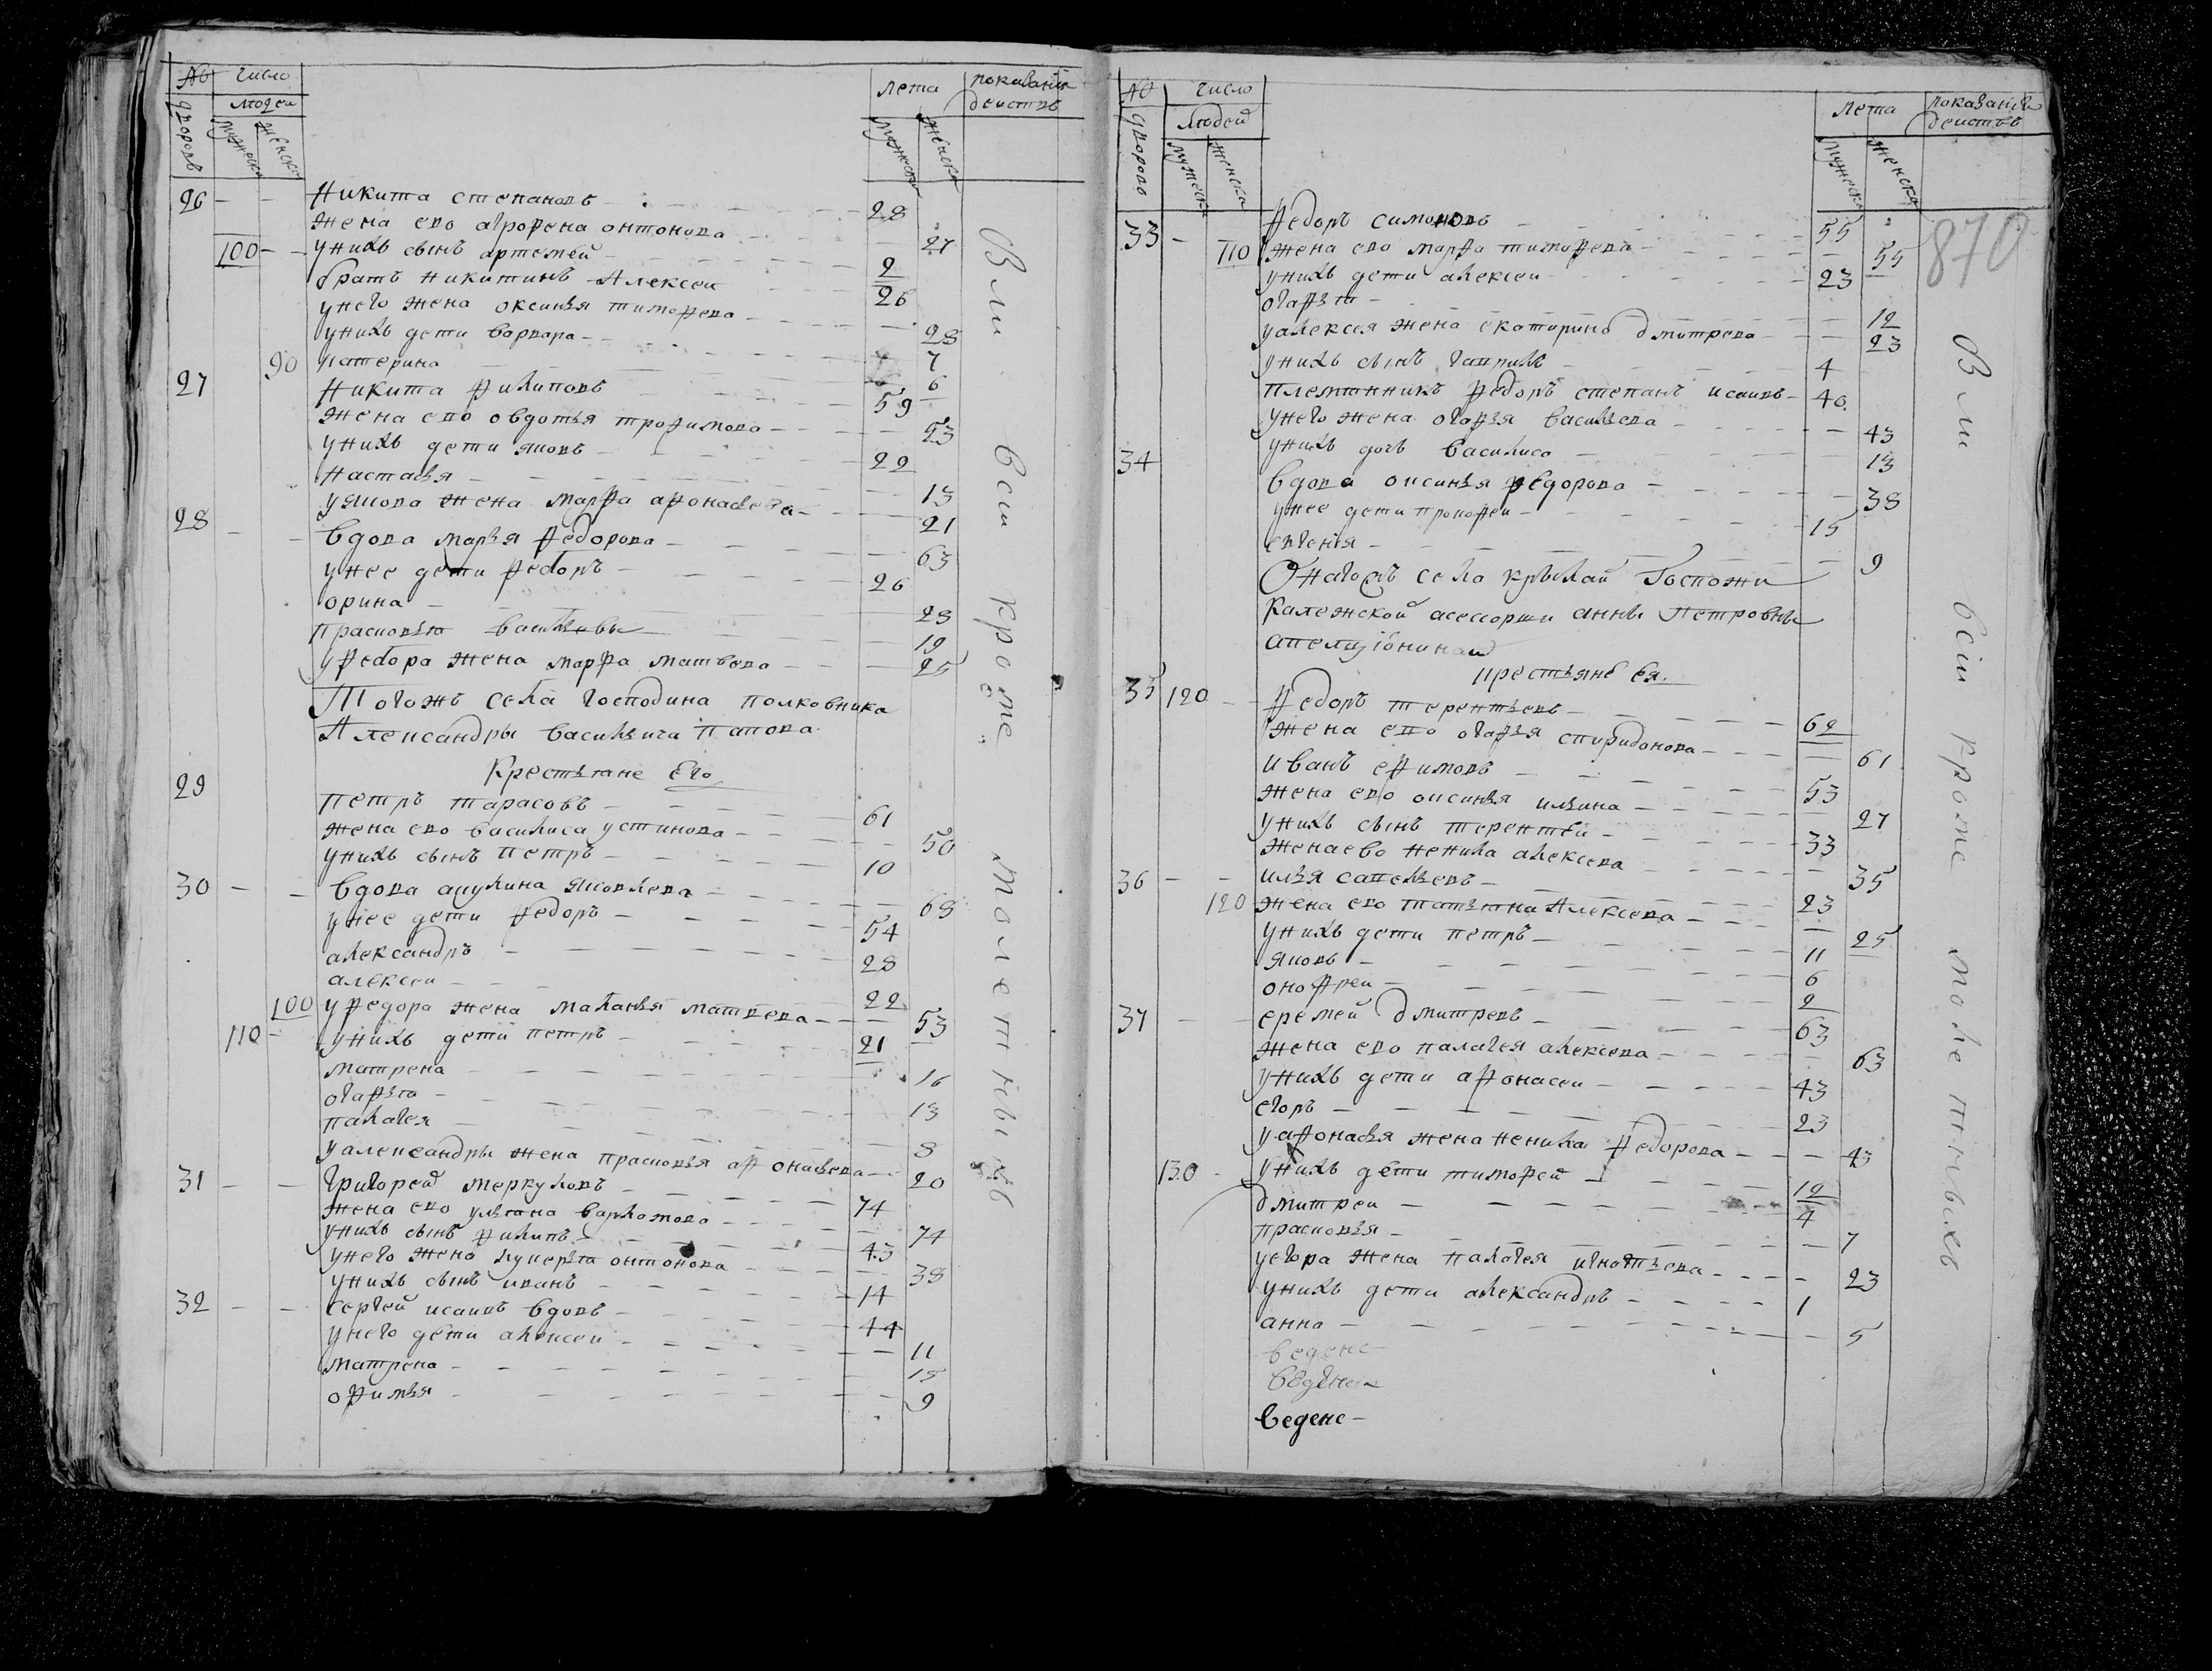 № дворовъ число людей мужеска женска лета мужеска женска показанiя действъ
26 Никита степановъ 28
жена ево агрофена онтонова 27
100 уних сынъ артемей 2
братъ Никитинъ Алексеи 26
унего жена оксинья тимофева 28
унихъ дети варвара 7
90 катерина 6
27 Никита филиповъ 59
жена ево овдотья трофимова 53
унихъ дети яковъ 22
настасья 13
уякова жена марфа афонасьева 21
28 вдова марья федорова 63
унее дети федоръ 26
орина 23
прасковья васильевы 19
уфедора жена марфа матвева 25
Тогожъ села господина полковника
Александры Васильича Папова
Крестьяне Его
29 петръ тарасовъ 61
жена ево василиса устинова 50
унихъ сынъ петръ 10
30 вдова акулина яковлева 68
унее дети федоръ 54
александръ 28
алексеи 22
100 уфедора жена маланья матвева 53
110 унихъ дети петръ 21
матрена 16
огафья 13
палагея 8
уалександры жена прасковья афонасьева 20
31 Григорей меркуловъ 74
жена ево ульяна варламова 74
унихъ сынъ филипъ 43
унего жена лукерья онтонова 38
унихъ сынъ иванъ 14
32 сергей исаивъ вдовъ 44
унего дети алексеи 11
матрена 15
офимья 9
Были вси кроме малетныхъ
№ дворовъ число людей мужеска женска лета мужеска женска показанiя действъ
870
33 федоръ симоновъ 55
110 жена ево марфа тимофева 55
унихъ дети алексеи 23
огафья 12
уалексея жена екатирина дмитрева 23
унихъ сынъ гаврилъ 4
племянникъ федоръ степанъ исаивъ 40
унего жена огафья васильева 43
унихъ дочь василиса 13
34 вдова оксинья федорова 38
унее дети прокофеи 15
евгенiя 9
Онагожъ села крылай Госпожи
калежской асессорши анны Петровны
35 крестьяне ея
120 федоръ терентьевъ 62
жена ево огафья спиридонова 61
иванъ ефимовъ 53
жена ево оксинья ильина 27
унихъ сынъ терентеи 33
женаево ненила алексева 35
36 илья савельевъ 23
120 жена ево татьяна Алексева 25
унихъ дети петръ 11
яковъ 6
онофреи 2
37 еремей дмитревъ 63
жена ево палагея алексева 63
унихъ дети афонасеи 43
егоръ 23
уафонасья жена ненила федорова 43
130 унихъ дети тимофей 12
дмитреи 4
прасковья 7
уегора жена палагея игнатьева 23
унихъ дети александръ 1
анна 5
ведене
ведене
ведене
Были вси кроме малетныхъ